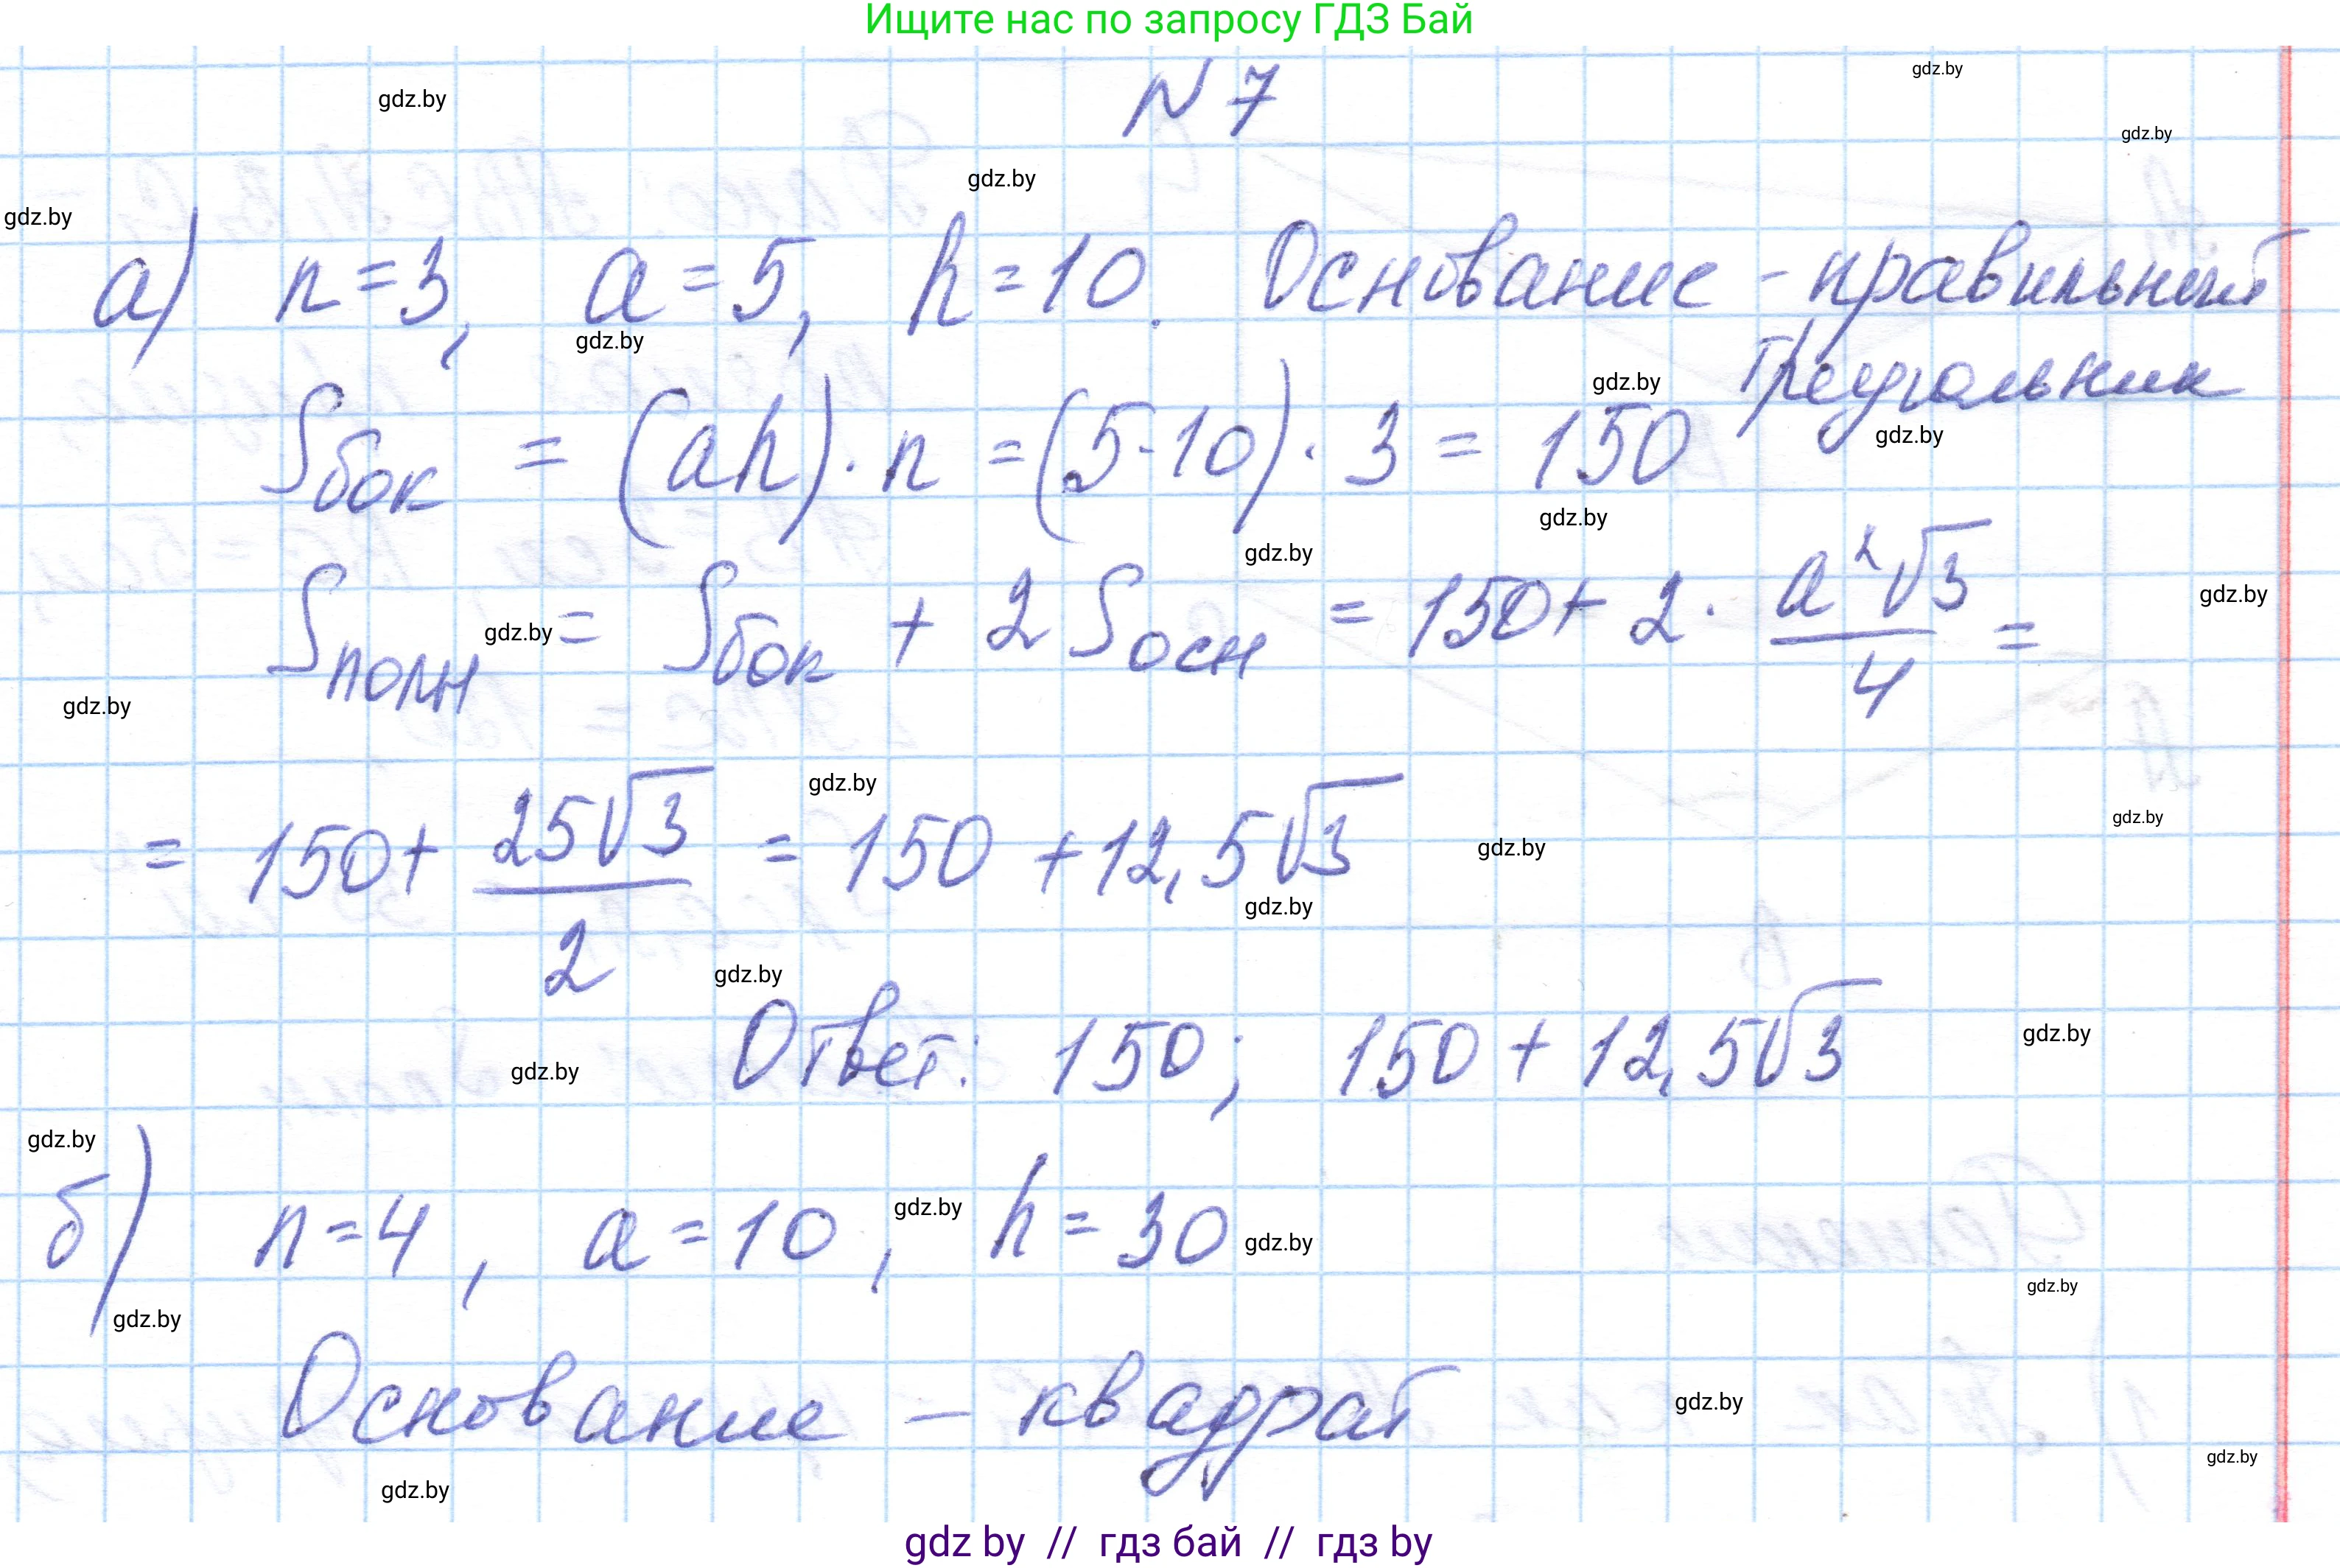 Ищите нас по запросу ГДЗ Бай
N 7
gdz.by
gdz.by
gdz.by
gdz.by
gdz.by
а) n=3, a=5, h=10. Основание - правильный
треугольник
gdz.by
gdz.by
Sбок = (ah)·n =(5·10)·3 = 150
gdz.by
gdz.by
gdz.by
Sполн = Sбок + 2Sосн = 150+2·a²√3/4 =
gdz.by
gdz.by
gdz.by
gdz.by
= 150+ 25√3/2 = 150 +12,5√3
gdz.by
gdz.by
gdz.by
gdz.by
Ответ: 150; 150+12,5√3
gdz.by
gdz.by
gdz.by
б) n=4, a=10, h=30
gdz.by
gdz.by
gdz.by
gdz.by
Основание – квадрат
gdz.by
gdz.by
gdz.by
gdz by // гдз бай // гдз by